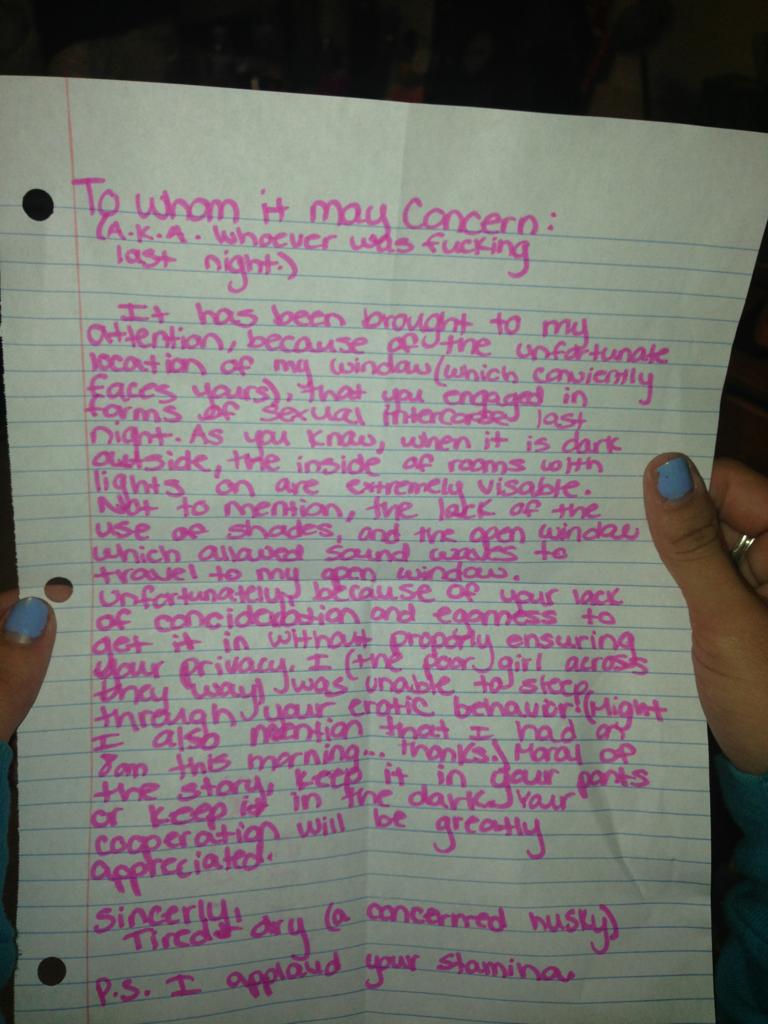 To whom it may Concern:
(A.K.A. whoever was fucking
last night.)
It has been brought to my
attention, because of the unfortunate
location of my window (which conviently
faces yours), that you engaged in
forms of sexual intercorse last
night. As you know, when it is dark
outside, the inside of rooms with
lights on are extremely visable.
Not to mention, the lack of the
use of shades, and the open window
which allowed sound waves to
travel to my open window.
Unfortunately, because of your lack
of concideration and egerness to
get it in without properly ensuring
your privacy, I (the poor girl across
they way) was unable to sleep
through your erotic behavior! (Might
I also mention that I had an
8am this morning... thanks.) Moral of
the story, keep it in your pants
or keep it in the dark. Your
cooperation will be greatly
appreciated.
Sincerly,
Tired + dry (a concerned husky)
P.S. I applaud your stamina.